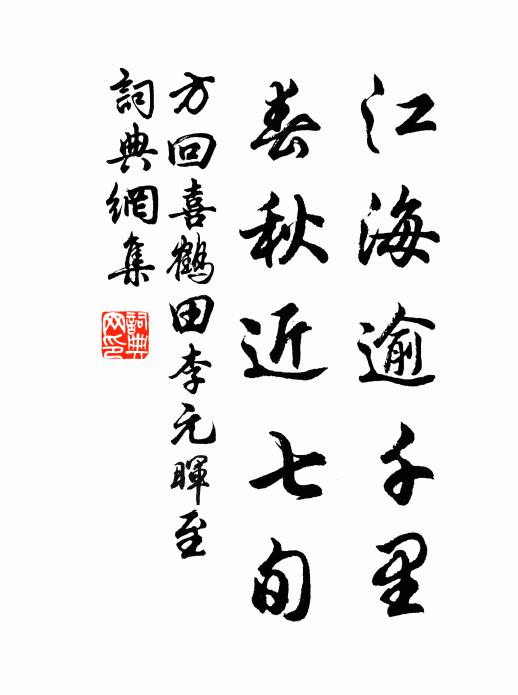 江海逾千里
春秋近七旬
方回喜鶴田李元暉至
詞典網集
詞典網印